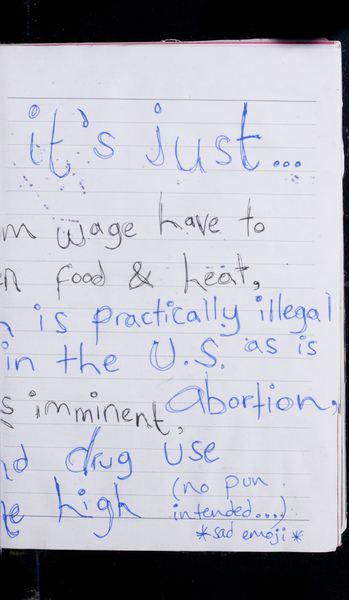 it's just...
m wage have to
n food & heat,
is practically illegal
in the U.S. as is
s imminent, abortion,
d drug use
e high (no pun
intended....)
*sad emoji*